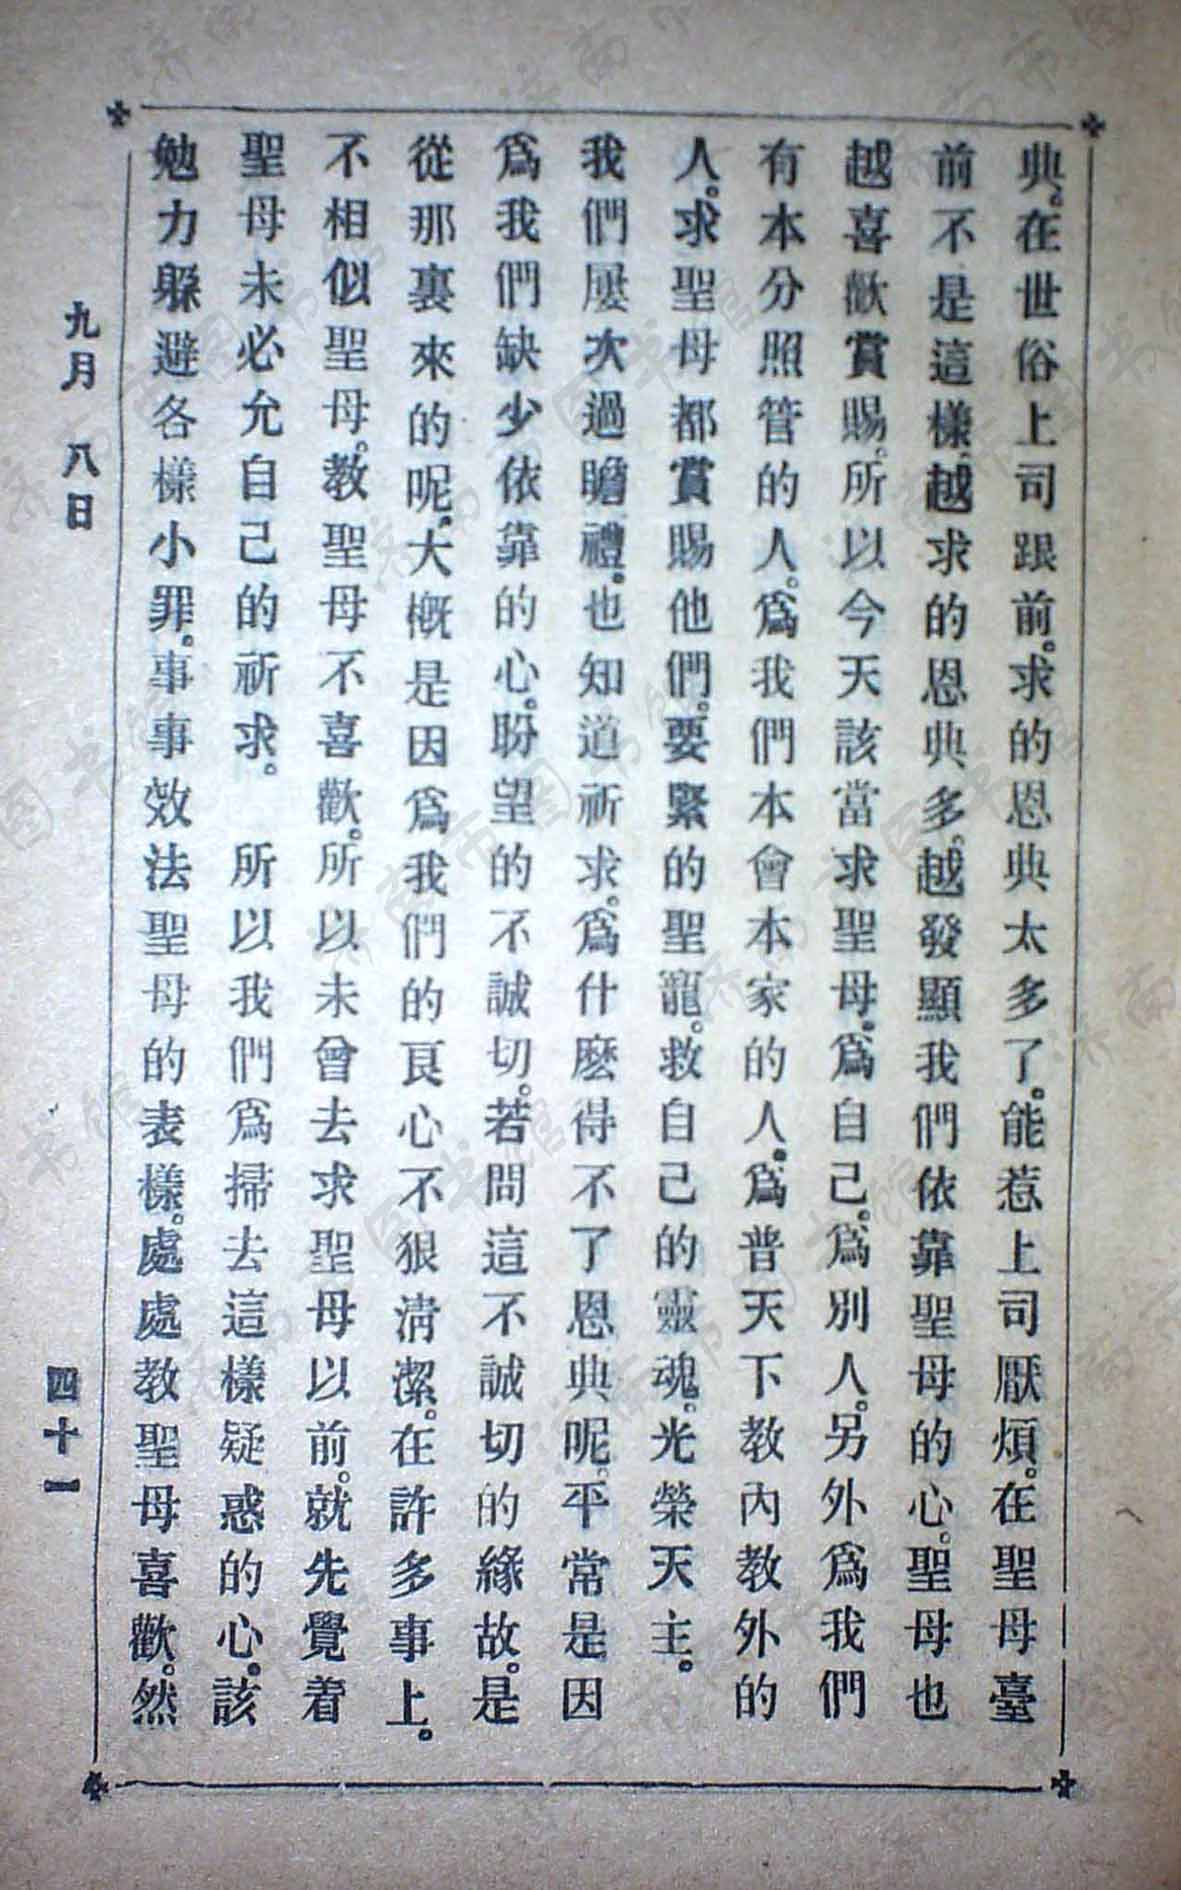 典。在世俗上司跟前。求的恩典太多了。能惹上司厭煩。在聖母臺
前不是這樣。越求的恩典多。越發顯我們依靠聖母的心。聖母也
越喜歡賞賜。所以今天該當求聖母。爲自己。爲別人。另外爲我們
有本分照管的人。爲我們本會本家的人。爲普天下教內教外的
人。求聖母都賞賜他們。要緊的聖寵。救自己的靈魂。光榮天主。
我們屢次過瞻禮。也知道祈求。爲什麽得不了恩典呢。平常是因
爲我們缺少依靠的心。盼望的不誠切。若問這不誠切的緣故。是
從那裏來的呢。大概是因爲我們的良心不狠清潔。在許多事上。
不相似聖母。教聖母不喜歡。所以未曾去求聖母以前。就先覺着
聖母未必允自己的祈求。　所以我們爲掃去這樣疑惑的心。該
勉力躲避各樣小罪。事事效法聖母的表樣。處處教聖母喜歡。然
九月 八日
四十一
济南市图书馆